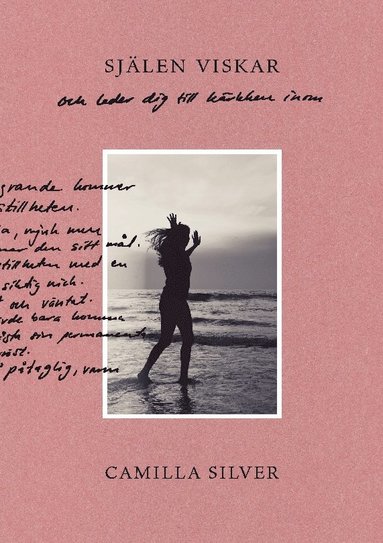 SJÄLEN VISKAR
och leder dig till kärleken inom
grande kommer
stillheten.
a, mjuk men
ner den sitt mål.
stillheten med en
siktig nick.
t och väntat.
rde bara komma
ista sin permanenta
påtaglig, varm
CAMILLA SILVER